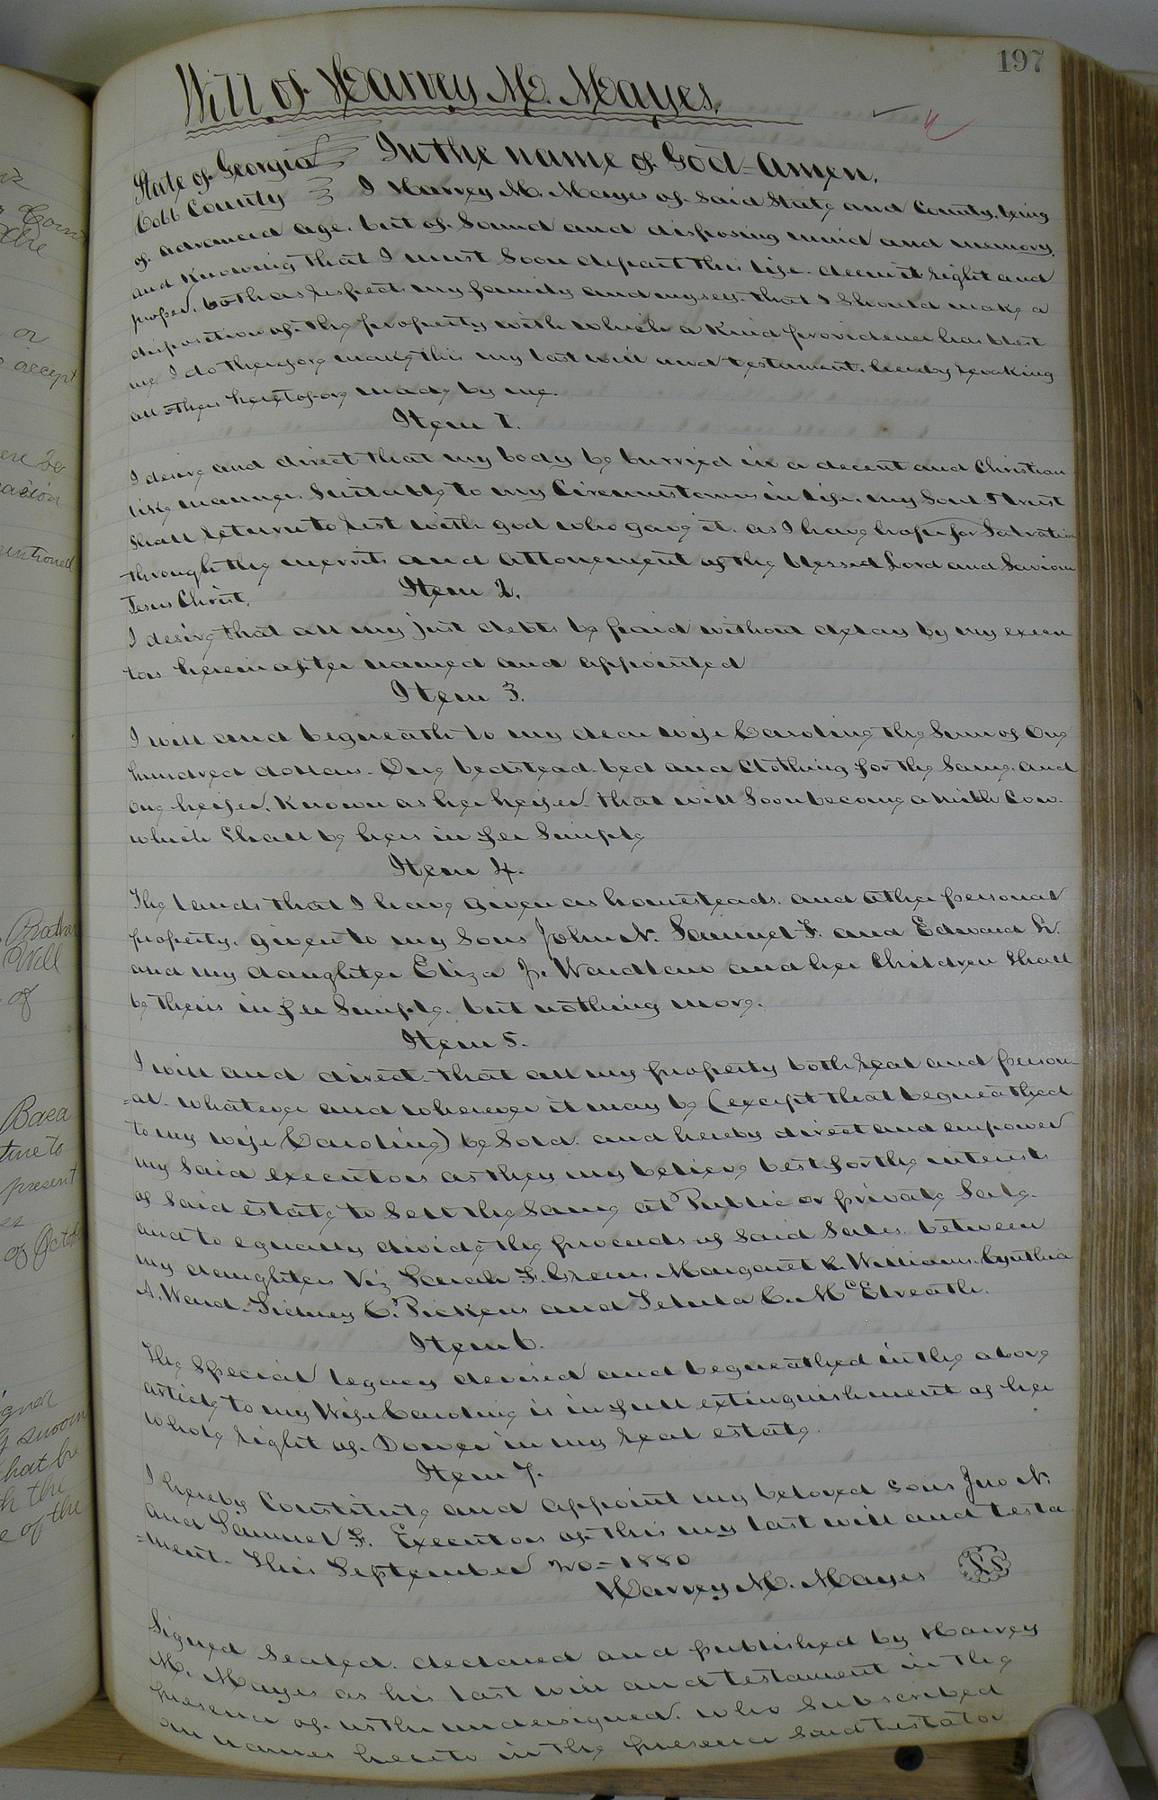 197
Will of Harvey M. Mayes.
State of Georgia In the name of God-Amen.
Cobb County I Harvey M. Mayes of Said State and County, being
of advanced age, but of Sound and disposing mind and memory,
and Knowing that I must Soon depart this life, deem it right and
proper, both as respects my family and myself, that I Should make a
disposition of the property with which a Kind providence has blest
me, I do therefore make this my last will and testament, hereby revoking
all others heretofore made by me.
Item 1.
I desire and direct that my body be burried in a decent and Christian
like manner, Suitable to my Circumstances in life, my Soul I trust
Shall return to rest with god who gave it, as I have hope for Salvation
through the merrits and attonement of the blessed Lord and Saviour
Jesus Christ.
Item 2.
I desire that all my just debts be paid without delay by my execu
tors herein after named and appointed
Item 3.
I will and bequeath to my dear wife Caroline the Sum of One
hundred dollars- One bedstead. bed and Clothing for the Same. and
one heifer, Known as her heifer. that will Soon become a milk Cow.
which Shall be hers in fee Simple
Item 4.
The lands that I have given as homesteads, and other personal
property, given to my Sons John N. Samuel F. and Edward
and my daughter Eliza J. Wardlaw and her Children Shall
be theirs in fee Simple, but nothing more.
Item 5.
I will and direct that all my property both real and person
=al- whatever and wherever it may be (except that bequeathed
to my wife Caroline) be Sold. and hereby direct and empower
my Said executors as they my believe best for the interests
of Said estate to Sell the Same at Public or private Sale.
and to equally divide the proceeds of Said Sales between
my daughters Viz Sarah F. Green, Margaret K. Williams, Cynthia
A. Ward- Sidney C. Pickens and Letula C. McElreath.
Item 6.
The Special legacy devised and bequeathed in the above
article to my Wife Caroline is in full extinguishment of her
whole right of Dower in my real estate.
Item 7.
I hereby Constitute and appoint my beloved sons Jno N.
and Samuel F. Executors of this my last will and testa
=ment. This September 20-1880
Harvey M. Mayes LS
Signed Sealed. declared and published by Harvey
M. Mayes as his last will and testament in the
presence of us the undersigned, who Subscribed
our names hereto in the presence Said testator
or
accept
mentioned
Will
of
Baea
present
of Octo
that he
h the
e of the